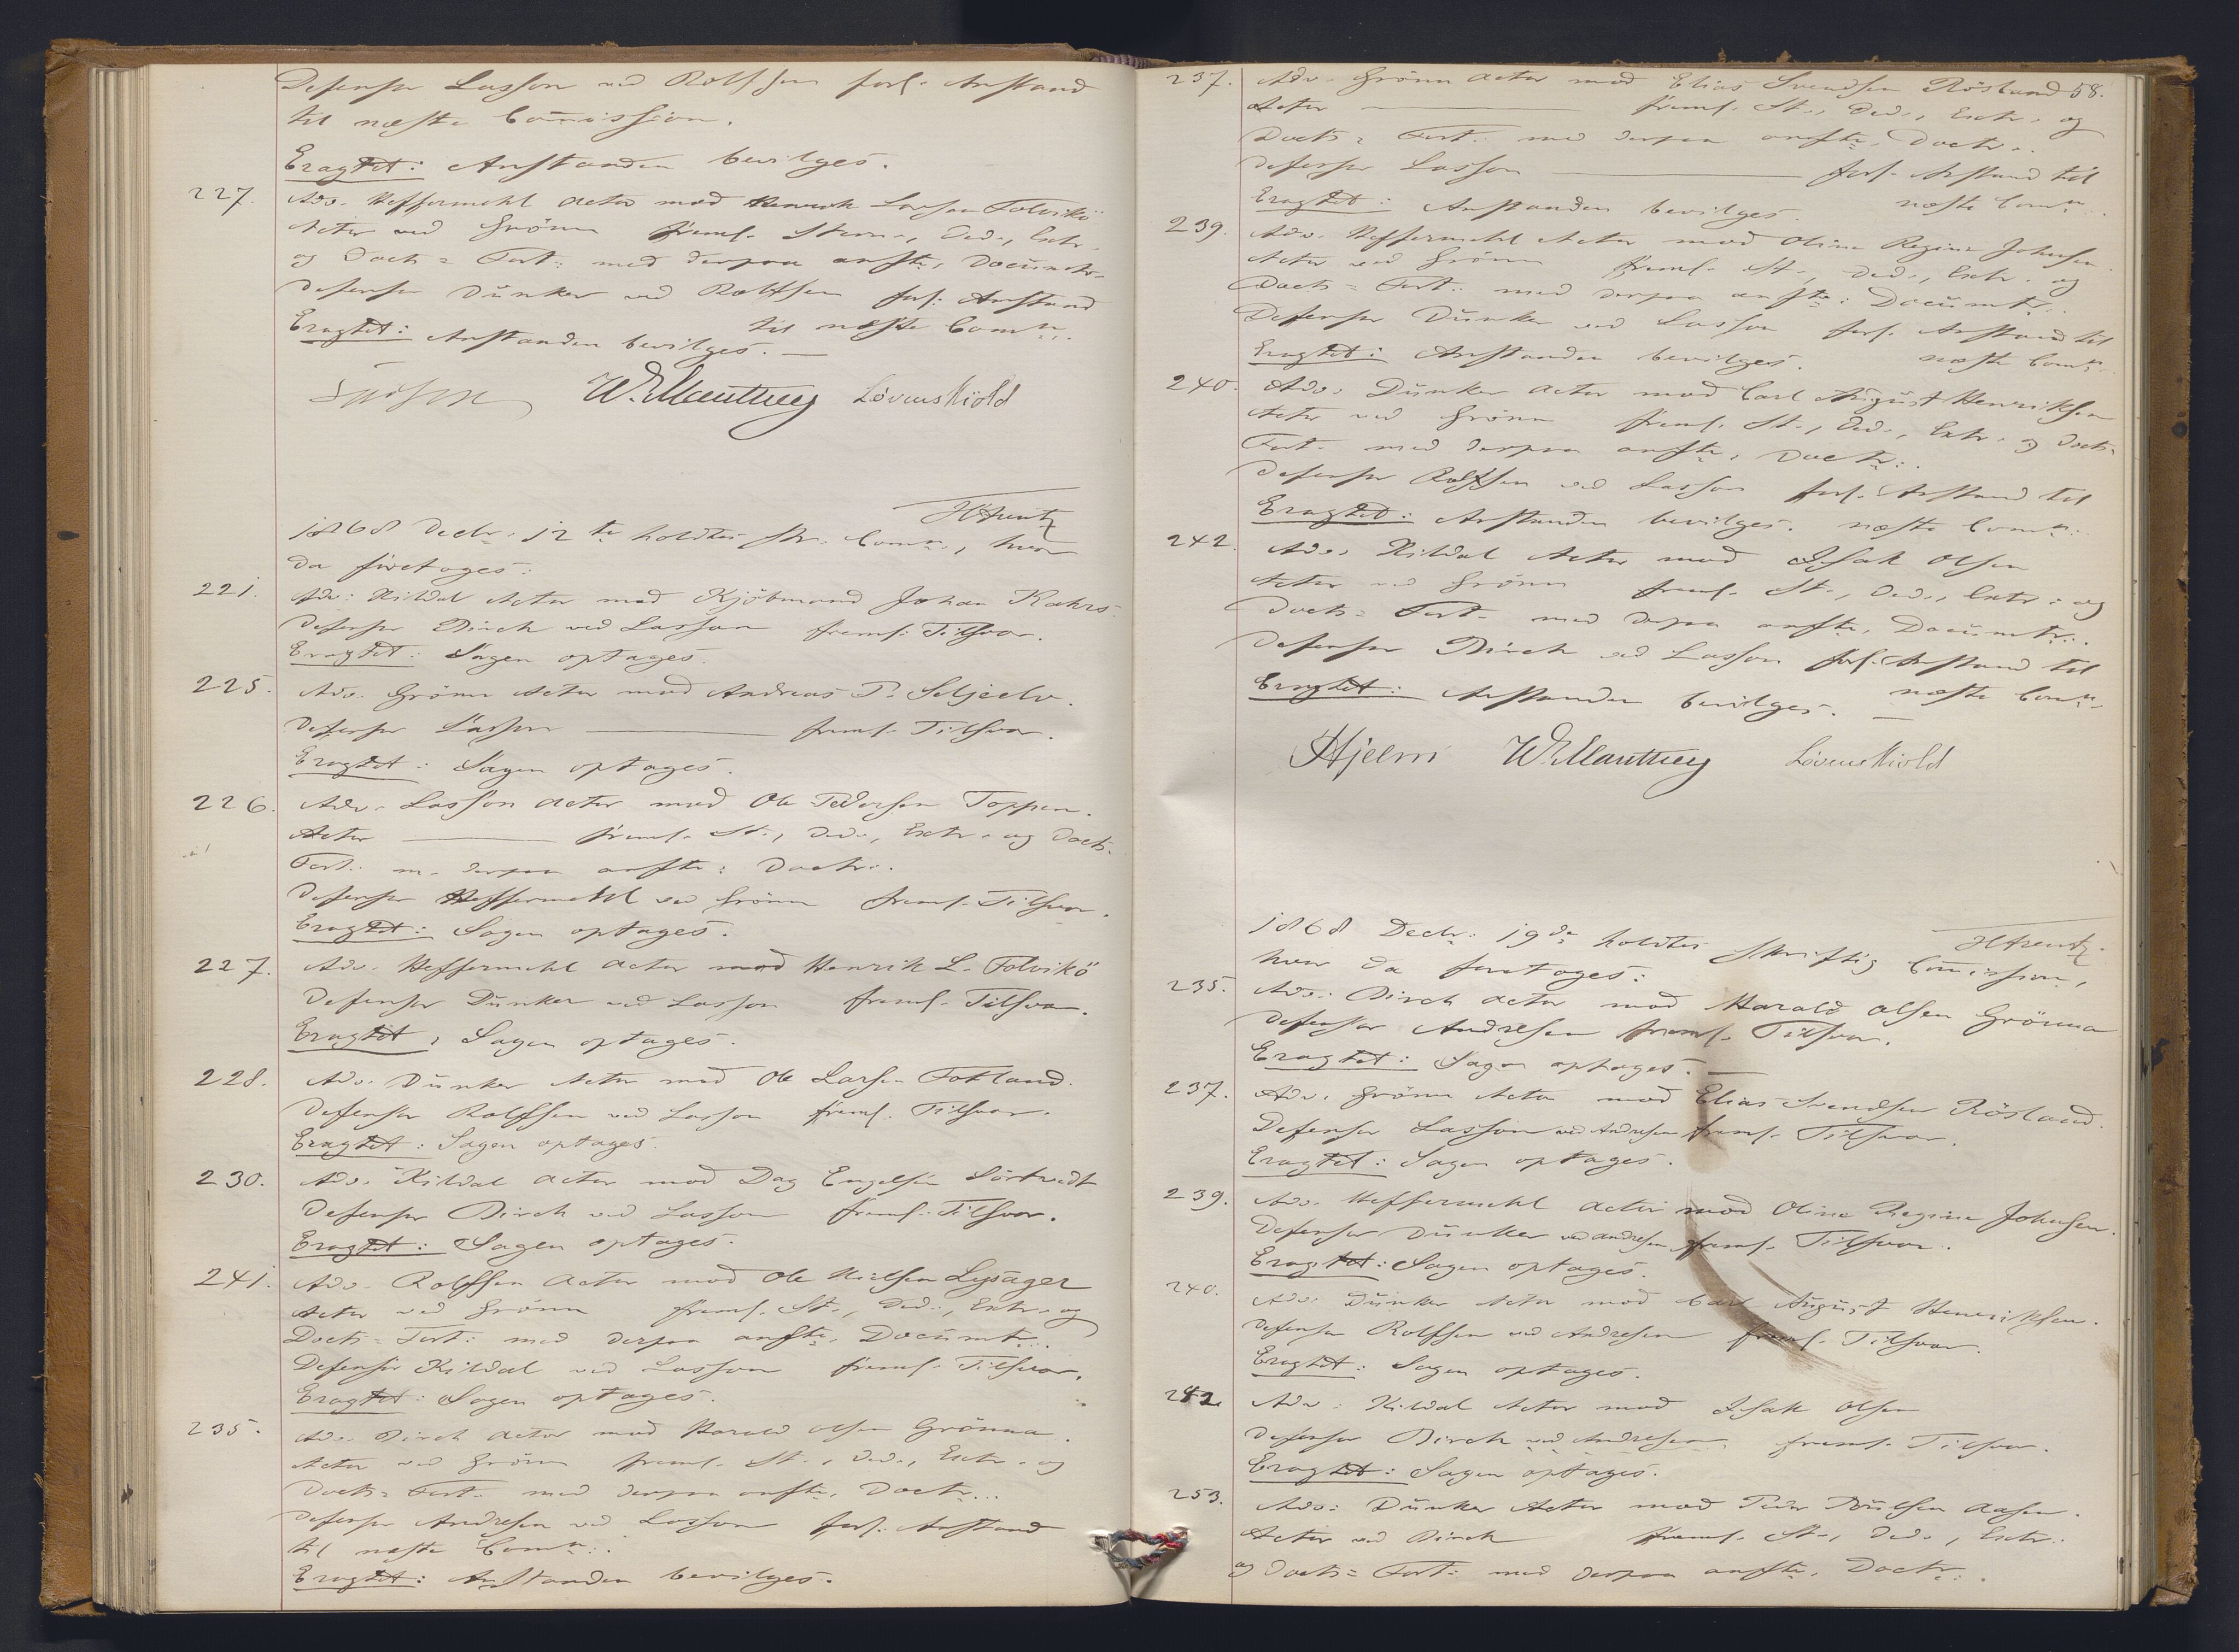 Defensor Lasson ved Rolfsen forl. Anstand
til næste Commission.
Eragtet: Anstanden bevilges.
227. Adv. Heffermehl Actor mod Henrik Larsen Folvikö
Actor ved Grönn freml. Stevn., Ded., Extr.
og Docts = Fort: med derpaa anfte, Documtr.
Defensor Dunker ved Rolfsen forl: Anstand
til næste Comn.
Eragtet: Anstanden bevilges. —
W. Manthey Løvenskiold
1868 Decbr. 12te holdtes skr. Comn., hvor
da foretoges:
221. Adv: Kildal Actor mod Kjöbmand Johan Kahrs.
Defensor Birch ved Lasson freml. Tilsvar.
Eragtet: Sagen optages.
225. Adv. Grönn Actor mod Andreas P. Seljeelv.
Defensor Lasson — freml. Tilsvar.
Eragtet: Sagen optages.
226. Adv. Lasson Actor mod Ole Pedersen Toppen.
Actor — freml. St., Ded., Extr. og Docts.
Fort. m. derpaa anfte: Doctr.
Defensor Heffermehl ved Grönn freml. Tilsvar.
Eragtet: Sagen optages.
227. Adv. Heffermehl Actor mod Henrik L. Folvikö
Defensor Dunker ved Lasson freml. Tilsvar.
Eragtet, Sagen optages.
228. Adv. Dunker Actor mod Ole Larsen Fotland.
Defensor Rolfsen ved Lasson freml. Tilsvar.
Eragtet: Sagen optages.
230. Adv. Kildal Actor mod Dag Engelsen Sörtvedt
Defensor Birch ved Lasson freml: Tilsvar.
Eragtet: Sagen optages.
241. Adv. Rolfsen Actor mod Ole Nielsen Lysager
Actor ved Grönn freml. St., Ded., Extr. og
Docts = Fort: med derpaa anfte, Documtr.
Defensor Kildal ved Lasson freml. Tilsvar.
Eragtet: Sagen optages.
235. Adv. Birch Actor mod Harald Olsen Grönna.
Actor ved Grönn freml. St., Ded., Extr. og
Docts = Fort. med derpaa anfte, Doctr.
Defensor Andresen ved Lasson forl: Anstand
til næste Comn.
Eragtet: Anstanden bevilges.
58.
237. Adv. Grönn Actor mod Elias Svendsen Rösland
Actor — freml. St., Ded., Extr. og
Docts = Fort: med derpaa anfte, Doctr.
Defensor Lasson — forl. Anstand til
næste Comn.
Eragtet: Anstanden bevilges.
239. Adv. Heffermehl Actor mod Oline Regine Johnsen
Actor ved Grönn freml. St., Ded., Extr. og
Docts = Fort: med derpaa anfte: Documtr.
Defensor Dunker ved Lasson forl. Anstand til
næste Comn.
Eragtet: Anstanden bevilges.
240. Adv. Dunker Actor mod Carl August Henriksen
Actor ved Grönn freml. St., Ded., Extr. og Docts =
Fort. med derpaa anfte, Doctr.
Defensor Rolfsen ved Lasson forl. Anstand til
Eragtet: Anstanden bevilges. næste Comn.
242. Adv. Kildal Actor mod Isak Olsen
Actor ved Grönn freml. St., Ded., Extr. og
Docts = Fort. med derpaa anfte, Documtr.
Defensor Birch ved Lasson forl. Anstand til
næste Comn.
Eragtet: Anstanden bevilges. —
Hjelm W. Manthey Løvenskiold
1868 Decbr: 19de holdtes skriftlig Commission,
hvor da foretoges:
235. Adv. Birch Actor mod Harald Olsen Grönna
Defensor Andresen freml. Tilsvar.
Eragtet: Sagen optages. —
237. Adv. Grönn Actor mod Elias Svendsen Rösland.
Defensor Lasson ved Andresen freml. Tilsvar.
Eragtet: Sagen optages.
239. Adv. Heffermehl Actor mod Oline Regine Johnsen.
Defensor Dunker ved Andresen freml. Tilsvar.
Eragtet: Sagen optages.
240. Adv. Dunker Actor mod Carl August Henriksen.
Defensor Rolfsen ved Andresen freml. Tilsvar.
Eragtet: Sagen optages.
242. Adv: Kildal Actor mod Isak Olsen
Defensor Birch ved Andresen freml. Tilsvar.
Eragtet: Sagen optages.
253. Adv: Dunker Actor mod Peder Poulsen Aasen.
Actor ved Birch freml. St., Ded., Extr.
og Docts = Fort: med derpaa anfte, Doctr.